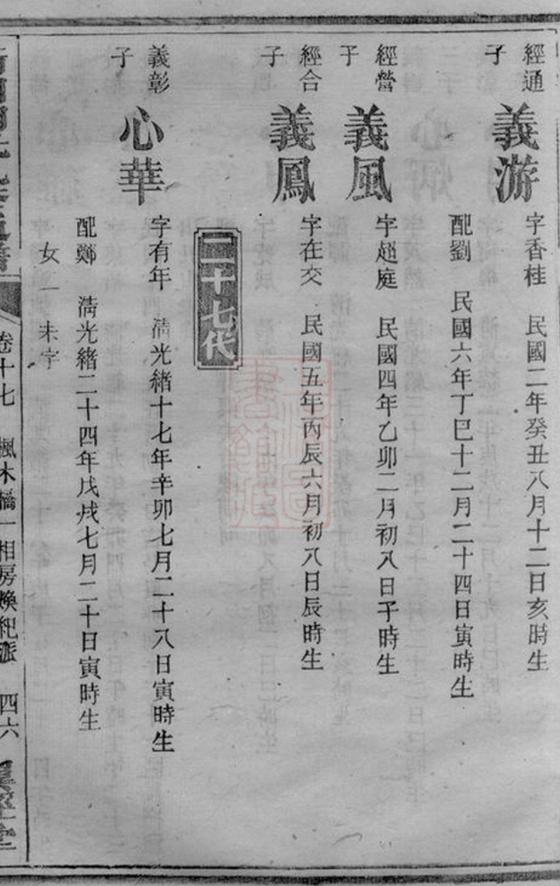 經通子 義游 字香桂 民國二年癸丑八月十二日亥時生
配劉 民國六年丁巳十二月二十四日寅時生
經營子 義風 字趙庭 民國四年乙卯二月初八日子時生
經合子 義鳳 字在交 民國五年丙辰六月初八日辰時生
二十七代
義彰子 心華 字有年 清光緒十七年辛卯七月二十八日寅時生
配鄭 清光緒二十四年戊戌七月二十日寅時生
女一未字
卷十七 楓木橋一相房煥紀派 四六